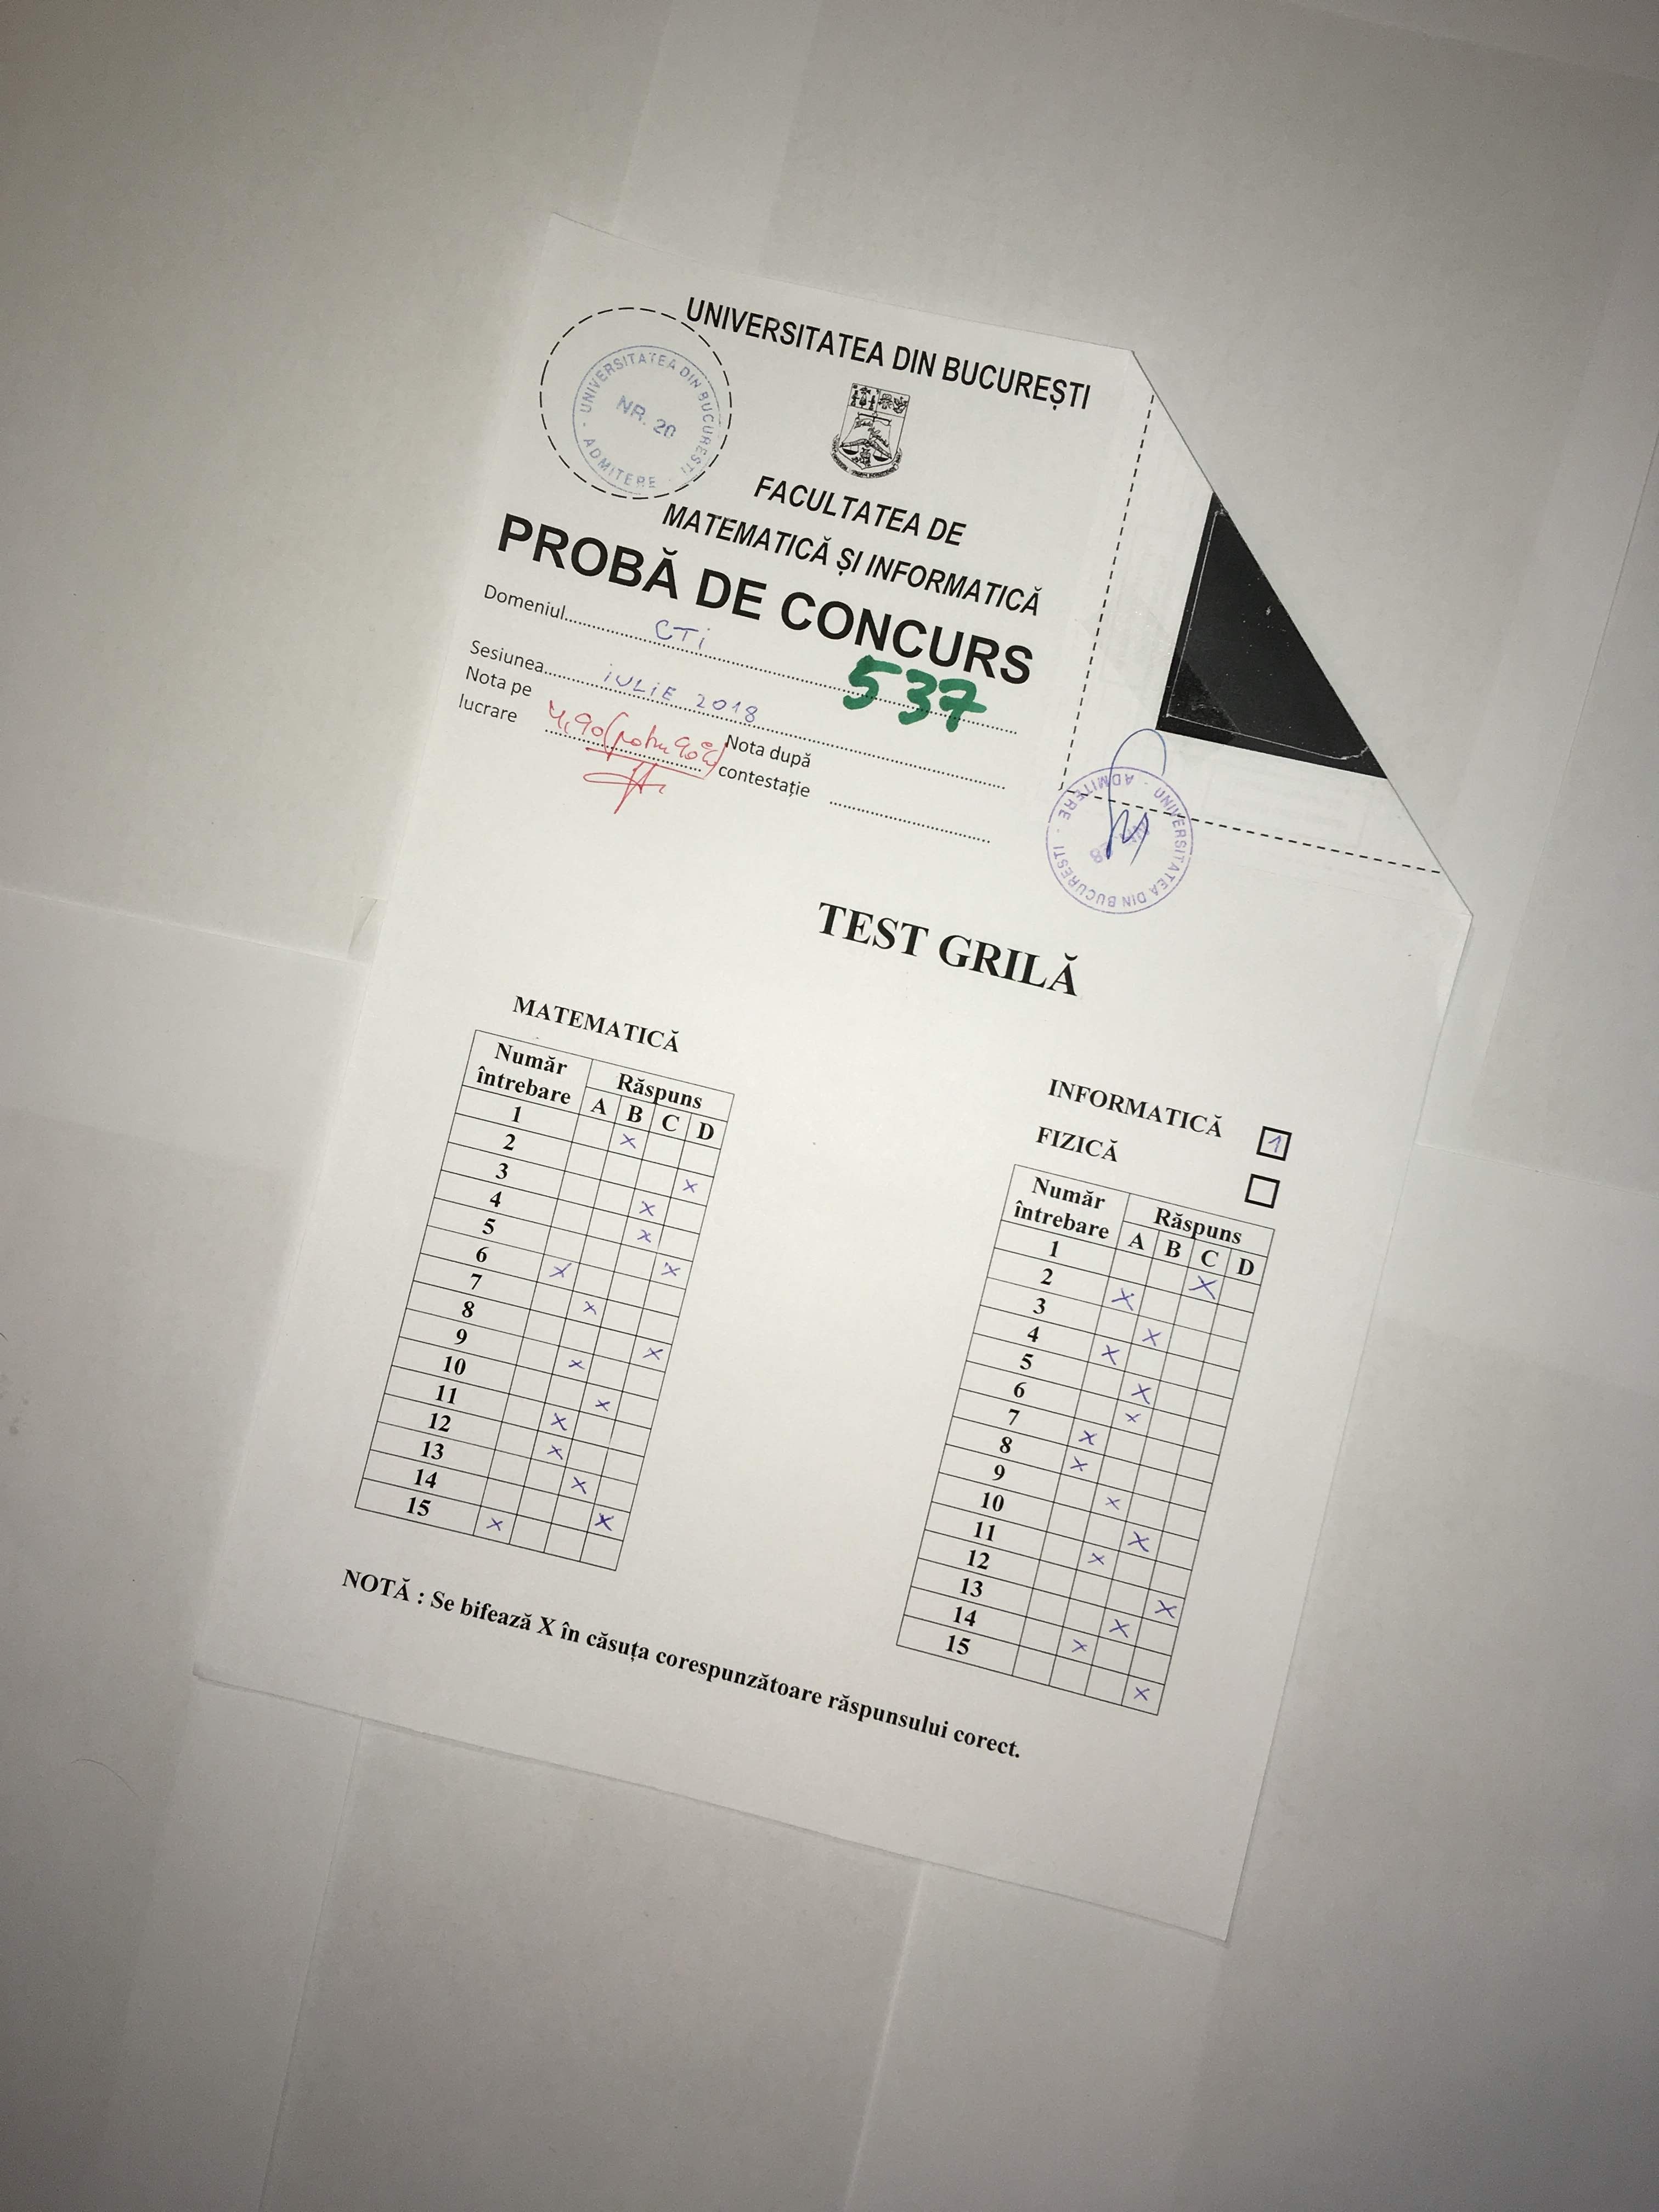 UNIVERSITATEA DIN BUCUREȘTI
UNIVERSITATEA DIN BUCURESTI
NR. 20
ADMITERE
FACULTATEA DE
MATEMATICĂ ȘI INFORMATICĂ
PROBĂ DE CONCURS
Domeniul CTi
537
Sesiunea iULiE 2018
Nota pe lucrare 4,90
Nota după contestație
UNIVERSITATEA DIN BUCURESTI
ADMITERE
TEST GRILĂ
MATEMATICĂ
Număr întrebare Răspuns
A B C D
1 X
2 X
3 X
4 X
5 X
6 X
7 X
8 X
9 X
10 X
11 X
12 X
13 X
14 X
15 X
INFORMATICĂ 1
FIZICĂ
Număr întrebare Răspuns
A B C D
1 X
2 X
3 X
4 X
5 X
6 X
7 X
8 X
9 X
10 X
11 X
12 X
13 X
14 X
15 X
NOTĂ : Se bifează X în căsuța corespunzătoare răspunsului corect.